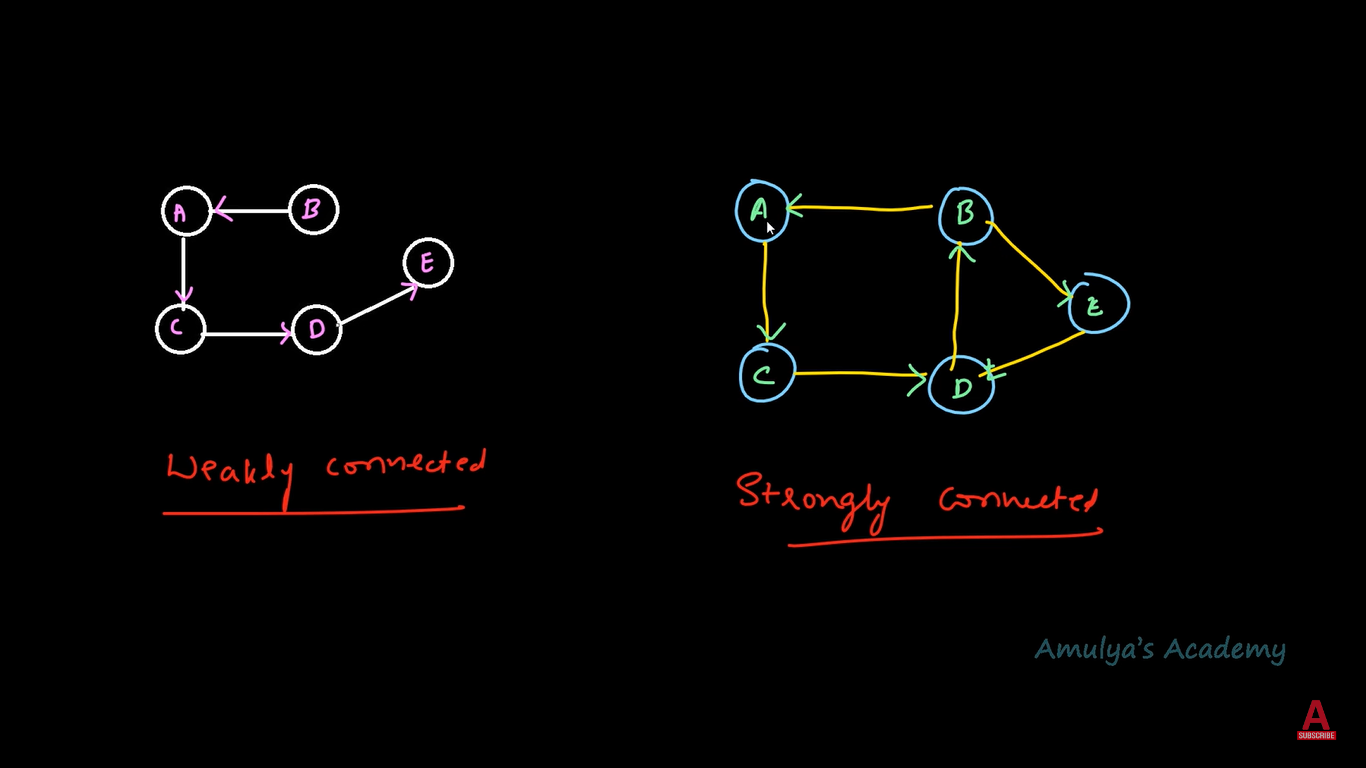 A B
E
C D
Weakly connected
A B
E
C D
Strongly connected
Amulya's Academy
A
SUBSCRIBE